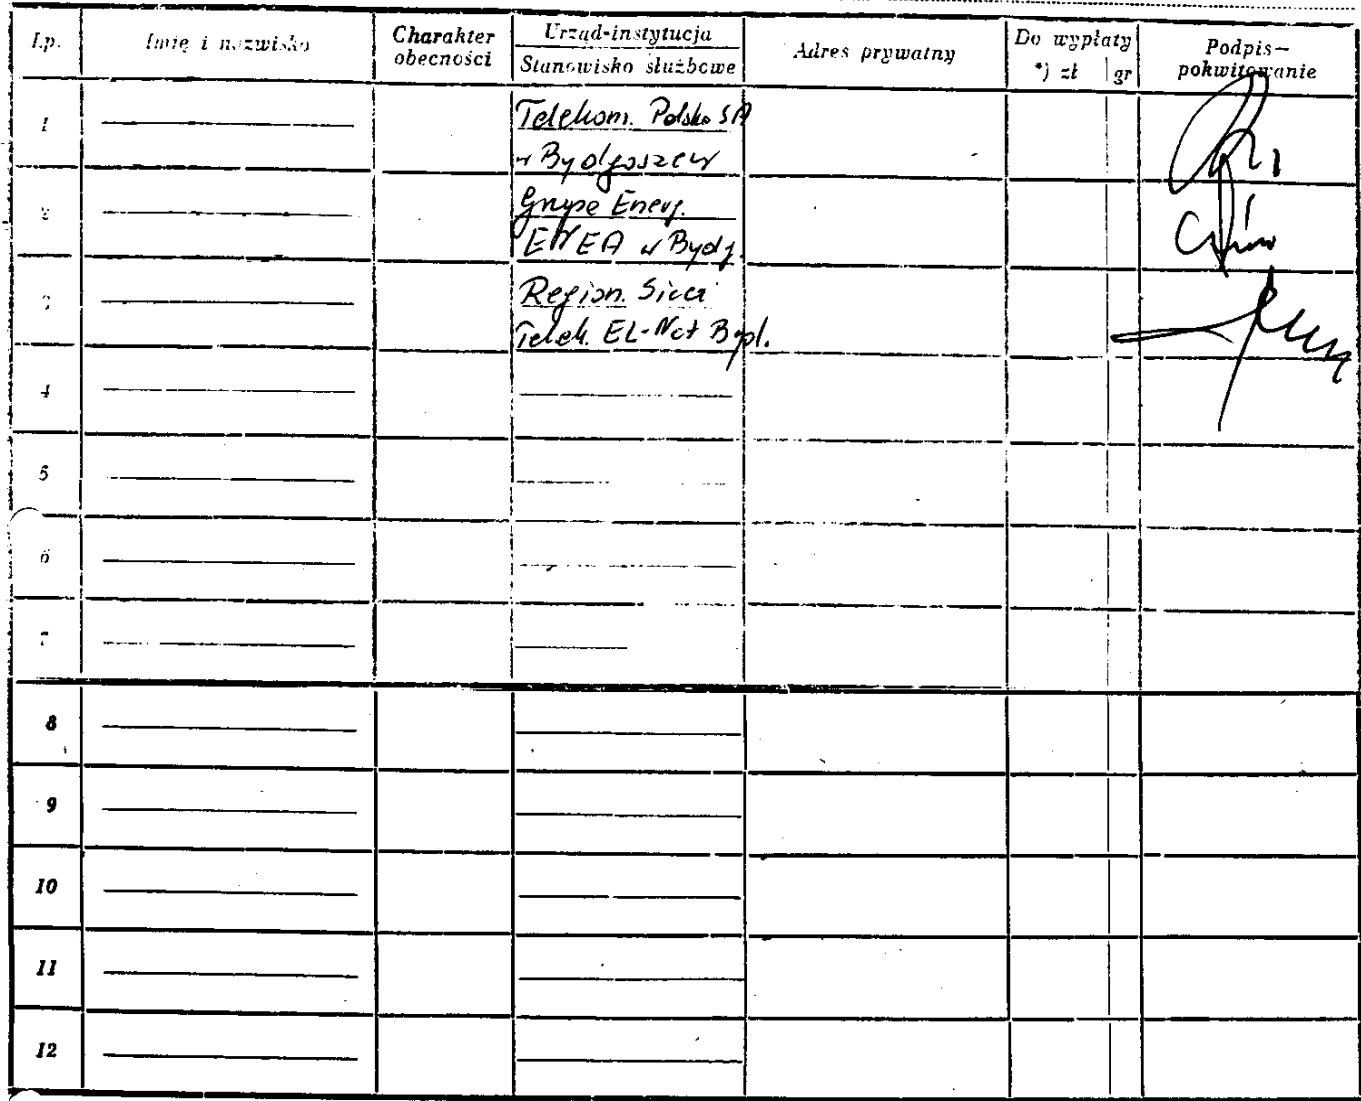 Lp.
Imię i nazwisko
Charakter
obecności
Urząd-instytucja
Stanowisko służbowe
Adres prywatny
Do wypłaty
*) zł gr
Podpis—
pokwitowanie
1
Telekom. Polska SA
w Bydgoszczy
2
Grupa Energ.
ENEA w Bydg.
3
Region. Sieci
Telek. EL-Net Bydl.
4
5
6
7
8
9
10
11
12